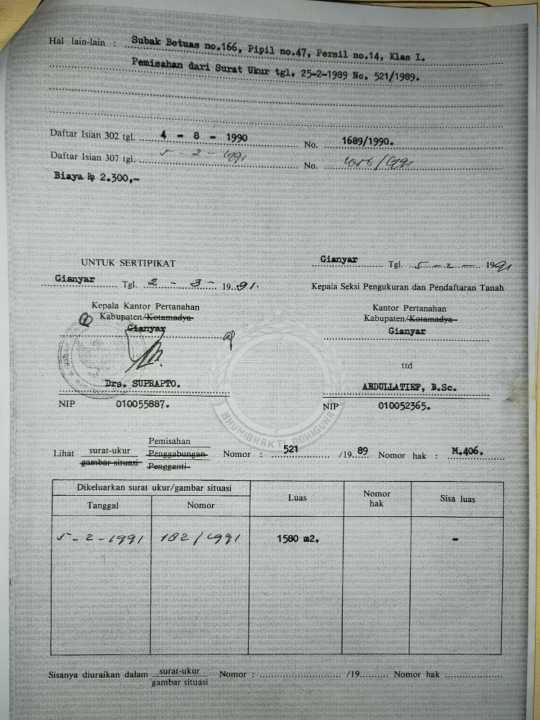 Hal lain-lain : Subak Betuas no.166, Pipil no.47, Persil no.14, Klas I.
Pemisahan dari Surat Ukur tgl. 25-2-1989 No. 521/1989.
Daftar Isian 302 tgl. 4 - 8 - 1990 No. 1689/1990.
Daftar Isian 307 tgl. 5 - 2 - 1991 No. /1991
Biaya Rp 2.300,-
UNTUK SERTIPIKAT
Gianyar Tgl. 5 - 2 - 1991
Gianyar Tgl. 2 - 3 - 19..91.
Kepala Seksi Pengukuran dan Pendaftaran Tanah
Kepala Kantor Pertanahan
Kabupaten/Kotamadya
Gianyar
Kantor Pertanahan
Kabupaten/Kotamadya
Gianyar
ttd
Drs. SUPRAPTO.
ABDULLATIEF, B.Sc.
NIP 010055887.
NIP 010052365.
BHUMIBHAKTI
Pemisahan
Lihat surat-ukur Penggabungan Nomor : 521 /19..89 Nomor hak : M.406.
gambar situasi Pengganti
Dikeluarkan surat ukur/gambar situasi
Tanggal Nomor Luas Nomor hak Sisa luas
5-2-1991 182/1991 1580 m2. -
Sisanya diuraikan dalam surat-ukur Nomor : /19 Nomor hak
gambar situasi